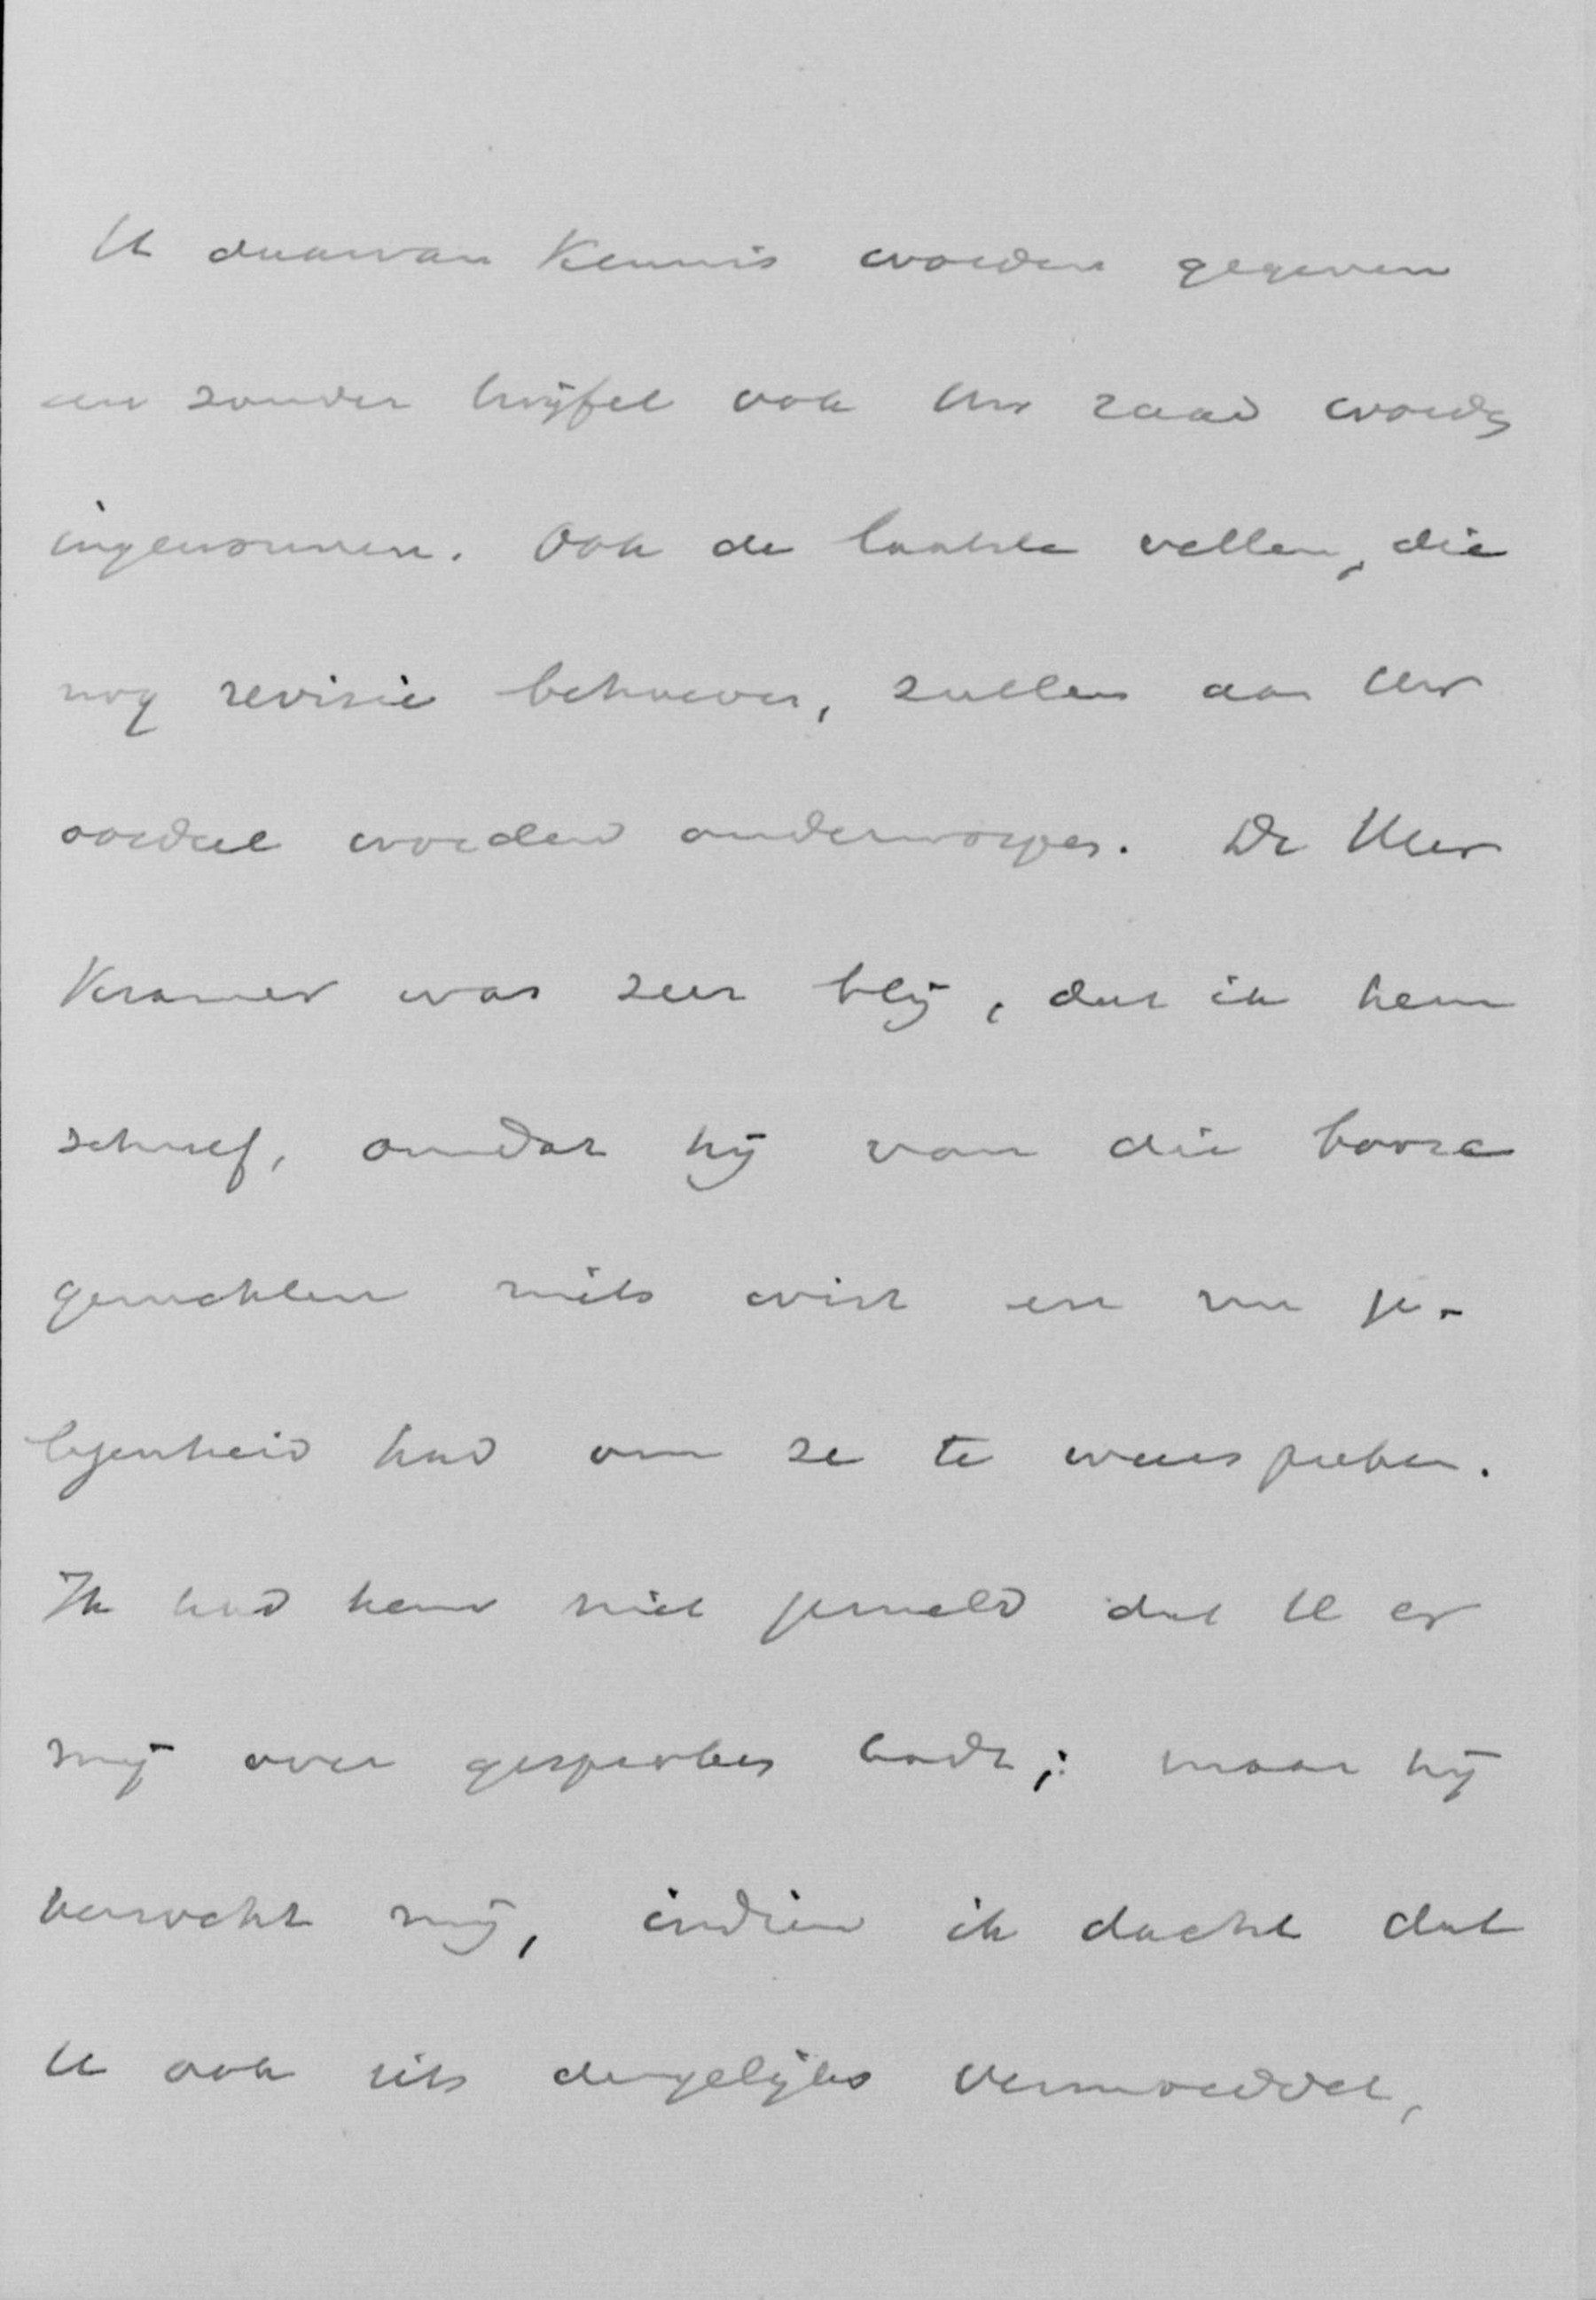 U daarvan kennis worden gegeven
en zonder twijfel ook Uw raad worden
ingewonnen. Ook de laatste vellen, die
nog revisie behoeven, zullen aan Uw
oordeel worden onderworpen. De Heer
Kramer was zeer blij, dat ik hem
schreef, omdat hij van die booze
geruchten niets wist en nu ge-
legenheid had om ze te weerspreken.
Ik had hem niet gemeld dat U er
mij over gesproken hadt; maar hij
verzocht mij, indien ik dacht dat
U ook iets dergelijks vermoeddet,